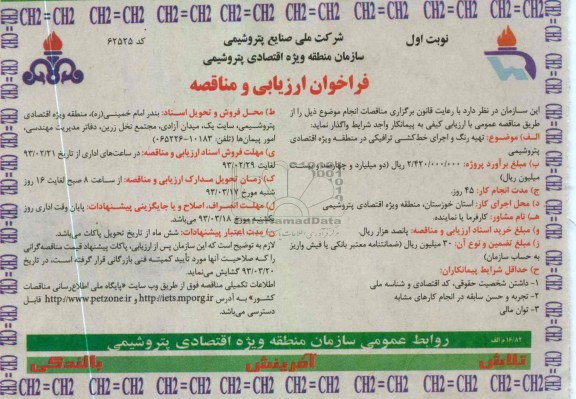 CH2 = CH2 = CH2 = CH2 = CH2 = CH2 = CH2 = CH2
نوبت اول
شرکت ملی صنایع پتروشیمی
کد ۶۲۵۲۵
سازمان منطقه ویژه اقتصادی پتروشیمی
فراخوان ارزیابی و مناقصه
این سازمان در نظر دارد با رعایت قانون برگزاری مناقصات انجام موضوع ذیل را از
طریق مناقصه عمومی با ارزیابی کیفی به پیمانکار واجد شرایط واگذار نماید:
الف) موضوع: تهیه رنگ و اجرای خط‌کشی ترافیکی در منطقـه ویژه اقتصادی
پتروشیمی
ب) مبلغ برآورد پروژه: ۲/۴۲۰/۰۰۰/۰۰۰ ریال (دو میلیارد و چهارصد و بیست
میلیون ریال)
ج) مدت انجام کار: ۴۵ روز.
د) محل اجرای کار: استان خوزستان، منطقه ویژه اقتصادی پتروشیمی
هـ) نام مشاور: کارفرما یا نماینده
و) مبلغ خرید اسناد ارزیابی و مناقصه: پانصد هزار ریال.
ز) مبلغ تضمین و نوع آن: ۳۰ میلیون ریال (ضمانتنامه معتبر بانکی یا فیش واریز
به حساب سازمان)
ح) حداقل شرایط پیمانکاران:
۱- داشتن شخصیت حقوقی، کد اقتصادی و شناسه ملی
۲- تجربه و حسن سابقه در انجام کارهای مشابه
۳- توان مالی
ط) محـل فروش و تحویل اسـناد: بندر امام خمینـی(ره)، منطقه ویژه اقتصادی
پتروشـیمی، سایت یک، میدان آزادی، مجتمع نخل زرین، دفاتر مدیریت مهندسی،
امور پیمان‌ها (تلفن: ۱۱۸۳-۰۶۵۲۲۶۰)
ی) مهلت فروش اسناد ارزیابی و مناقصه: در ساعت‌های اداری از تاریخ ۹۳/۰۲/۲۱
لغایت ۹۳/۰۲/۲۹
ک) زمان تحویل مدارک ارزیابی و مناقصه: از ساعت ۸ صبح لغایت ۱۶ روز
شنبه مورخ ۹۳/۰۳/۱۷
ل) مهلت انصراف، اصلاح و یا جایگزینی پیشنهادات: پایان وقت اداری روز
یکشنبه مورخ ۹۳/۰۳/۱۸ می‌باشد.
ن) مدت اعتبار پیشنهادات: شش ماه از تاریخ تحویل پاکات می‌باشد.
لازم به توضیح است که این سازمان پس از ارزیابی، پاکات پیشنهاد قیمت مناقصه‌گرانی
را که صلاحیت آنها مورد تأیید کمیته فنی بازرگانی قرار گرفته است، در تاریخ
۹۳/۰۳/۲۰ گشایش می‌نماید.
اطلاعات تکمیلی مناقصه فوق از طریق وب سایت «پایگاه ملی اطلاع‌رسانی مناقصات
کشور» به آدرس http://iets.mporg.ir و http://www.petzone.ir قابل
دسترسی می‌باشد.
روابط عمومی سازمان منطقه ویژه اقتصادی پتروشیمی
۱۶/۸۲ د الف
تلاش آفرینش بالندگی
CH2 = CH2 = CH2 = CH2 = CH2 = CH2 = CH2 = CH2